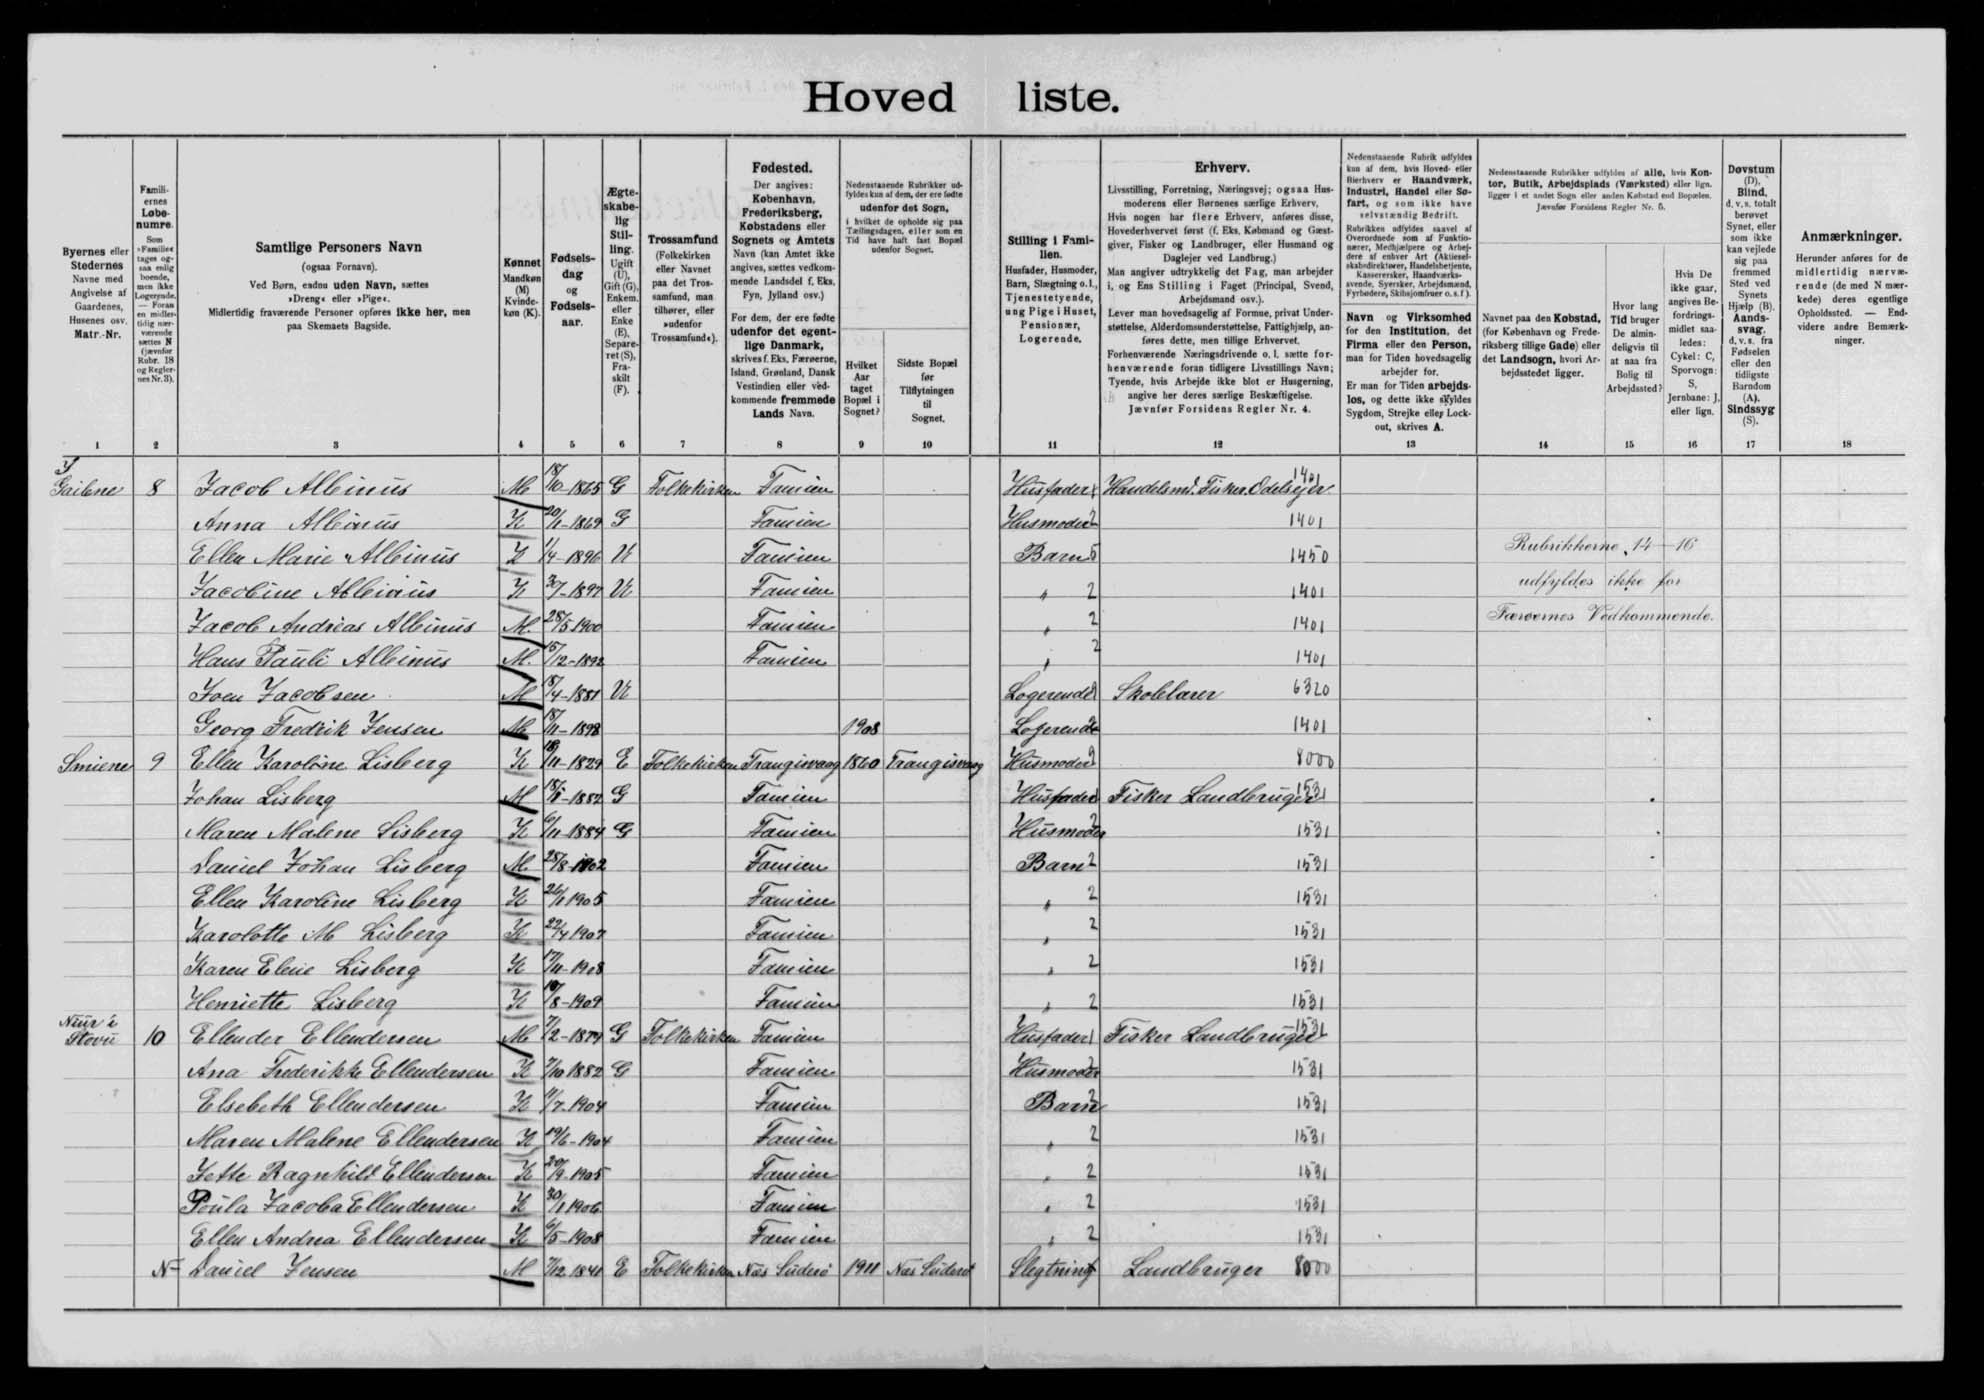 Hoved liste.
Byernes eller Stedernes Navne med Angivelse af Gaardenes, Husenes osv. Matr.-Nr.
Familiernes Løbenumre. Som »Familie« tages ogsaa enlig boende, men ikke Logerende. — Foran en midlertidig nærværende sættes N (jævnfør Rubr. 18 og Regler­nes Nr. 3).
Samtlige Personers Navn (ogsaa Fornavn). Ved Børn, endnu uden Navn, sættes »Dreng« eller »Pige«. Midlertidig fraværende Personer opføres ikke her, men paa Skemaets Bagside.
Kønnet Mandkøn (M) Kvindekøn (K).
Fødselsdag og Fødselsaar.
Ægteskabelig Stilling. Ugift (U), Gift (G), Enkem. eller Enke (E), Separeret (S), Fraskilt (F).
Trossamfund (Folkekirken eller Navnet paa det Trossamfund, man tilhører, eller »udenfor Trossamfund«).
Fødested. Der angives: København, Frederiksberg, Købstadens eller Sognets og Amtets Navn (kan Amtet ikke angives, sættes vedkommende Landsdel f. Eks. Fyn, Jylland osv.) For dem, der ere fødte udenfor det egentlige Danmark, skrives f. Eks. Færøerne, Island, Grønland, Dansk Vestindien eller vedkommende fremmede Lands Navn.
Nedenstaaende Rubrikker udfyldes kun af dem, der ere fødte udenfor det Sogn, i hvilket de opholde sig paa Tællingsdagen, eller som en Tid have haft fast Bopæl udenfor Sognet.
Hvilket Aar taget Bopæl i Sognet?
Sidste Bopæl før Tilflytningen til Sognet.
Stilling i Familien. Husfader, Husmoder, Barn, Slægtning o. l., Tjenestetyende, ung Pige i Huset, Pensionær, Logerende.
Erhverv. Livsstilling, Forretning, Næringsvej; ogsaa Husmoderens eller Børnenes særlige Erhverv. Hvis nogen har flere Erhverv, anføres disse, Hovederhvervet først (f. Eks. Købmand og Gæstgiver, Fisker og Landbruger, eller Husmand og Daglejer ved Landbrug.) Man angiver udtrykkelig det Fag, man arbejder i, og Ens Stilling i Faget (Principal, Svend, Arbejdsmand osv.). Lever man hovedsagelig af Formue, privat Understøttelse, Alderdomsunderstøttelse, Fattighjælp, anføres dette, men tillige Erhvervet. Forhenværende Næringsdrivende o. l. sætte forhenværende foran tidligere Livsstillings Navn; Tyende, hvis Arbejde ikke blot er Husgerning, angive her deres særlige Beskæftigelse. Jævnfør Forsidens Regler Nr. 4.
Nedenstaaende Rubrik udfyldes kun af dem, hvis Hoved- eller Bierhverv er Haandværk, Industri, Handel eller Søfart, og som ikke have selvstændig Bedrift. Rubrikken udfyldes saavel af Overordnede som af Funktionærer, Medhjælpere og Arbejdere af enhver Art (Aktieselskabsdirektører, Handelsbetjente, Kassererske, Haandværkssvende, Syersker, Arbejdsmænd, Fyrbødere, Skibsjomfruer o. s. f.).
Navn og Virksomhed for den Institution, det Firma eller den Person, man for Tiden hovedsagelig arbejder for. Er man for Tiden arbejdsløs, og dette ikke skyldes Sygdom, Strejke eller Lockout, skrives A.
Nedenstaaende Rubrikker udfyldes af alle, hvis Kontor, Butik, Arbejdsplads (Værksted) eller lign. ligger i et andet Sogn eller anden Købstad end Bopælen. Jævnfør Forsidens Regler Nr. 5.
Navnet paa den Købstad, (for København og Frederiksberg tillige Gade) eller det Landsogn, hvori Arbejdsstedet ligger.
Hvor lang Tid bruger De almindeligvis til at naa fra Bolig til Arbejdssted?
Hvis De ikke gaar, angives Befordringsmidlet saaledes: Cykel: C, Sporvogn: S, Jernbane: J, eller lign.
Døvstum (D), Blind, d. v. s. totalt berøvet Synet, eller som ikke kan vejlede sig paa fremmed Sted ved Synets Hjælp (B). Aandssvag, d. v. s. fra Fødselen eller den tidligste Barndom (A). Sindssyg (S).
Anmærkninger. Herunder anføres for de midlertidig nærværende (de med N mærkede) deres egentlige Opholdssted. — Endvidere andre Bemærkninger.
1 2 3 4 5 6 7 8 9 10 11 12 13 14 15 16 17 18
Y Gailene 8 Jacob Albinus M 18/10-1865 G Folkekirken Famien Husfader 1 Handelsmd. Fisker. Odelsejer 1401
Anna Albinus K 20/1-1869 G Famien Husmoder 2 1401
Ellen Marie Albinus K 1/4-1896 U Famien Barn 5 1450 Rubrikkerne 14-16
Jacobine Albinus K 1897 U Famien " 2 1401 udfyldes ikke for
Jacob Andreas Albinus M. 28/5 1900 Famien " 2 1401 Færøernes Vedkommende.
Hans Pauli Albinus M. 15/12-1892 Famien " 2 1401
Joen Jacobsen M 18/4-1881 U Logerende 1 Skolelærer 6320
Georg Fredrik Jensen M 18/11-1898 1908 Logerende 1401
Smiene 9 Ellen Karoline Lisberg K 18/11-1829 E Folkekirken Trangisvaag 1860 Trangisvaag Husmoder 9 8000
Johan Lisberg M 1882 G Famien Husfader 1 Fisker Landbruger 1531
Maren Malene Lisberg K 6/11-1884 G Famien Husmoder 2 1531
Daniel Johan Lisberg M 28/8-1902 Famien Barn 2 1531
Ellen Karoline Lisberg K 26/1 1905 Famien " 2 1531
Karolotte M Lisberg K 22/4 1907 Famien " 2 1531
Karen Elene Lisberg K 17/11-1908 Famien " 2 1531
Henriette Lisberg K 19/8-1909 Famien " 2 1531
Niur i Stovu 10 Ellender Ellendersen M 7/2-1874 G Folkekirken Famien Husfader 1 Fisker Landbruger 1531
Ana Frederikke Ellendersen K 7/10 1882 G Famien Husmoder 2 1531
Elsebeth Ellendersen K 11/7-1904 Famien Barn 2 1531
Maren Malene Ellendersen K 19/6-1904 Famien " 2 1531
Jette Ragnhild Ellendersen K 20/9-1905 Famien " 2 1531
Poula Jacoba Ellendersen K 30/1 1906 Famien " 2 1531
Ellen Andrea Ellendersen K 6/5-1908 Famien " 2 1531
N- Daniel Jensen M 7/12 1841 E Folkekirken Næs Suderø 1911 Næs Suderø Slegtning Landbruger 8000